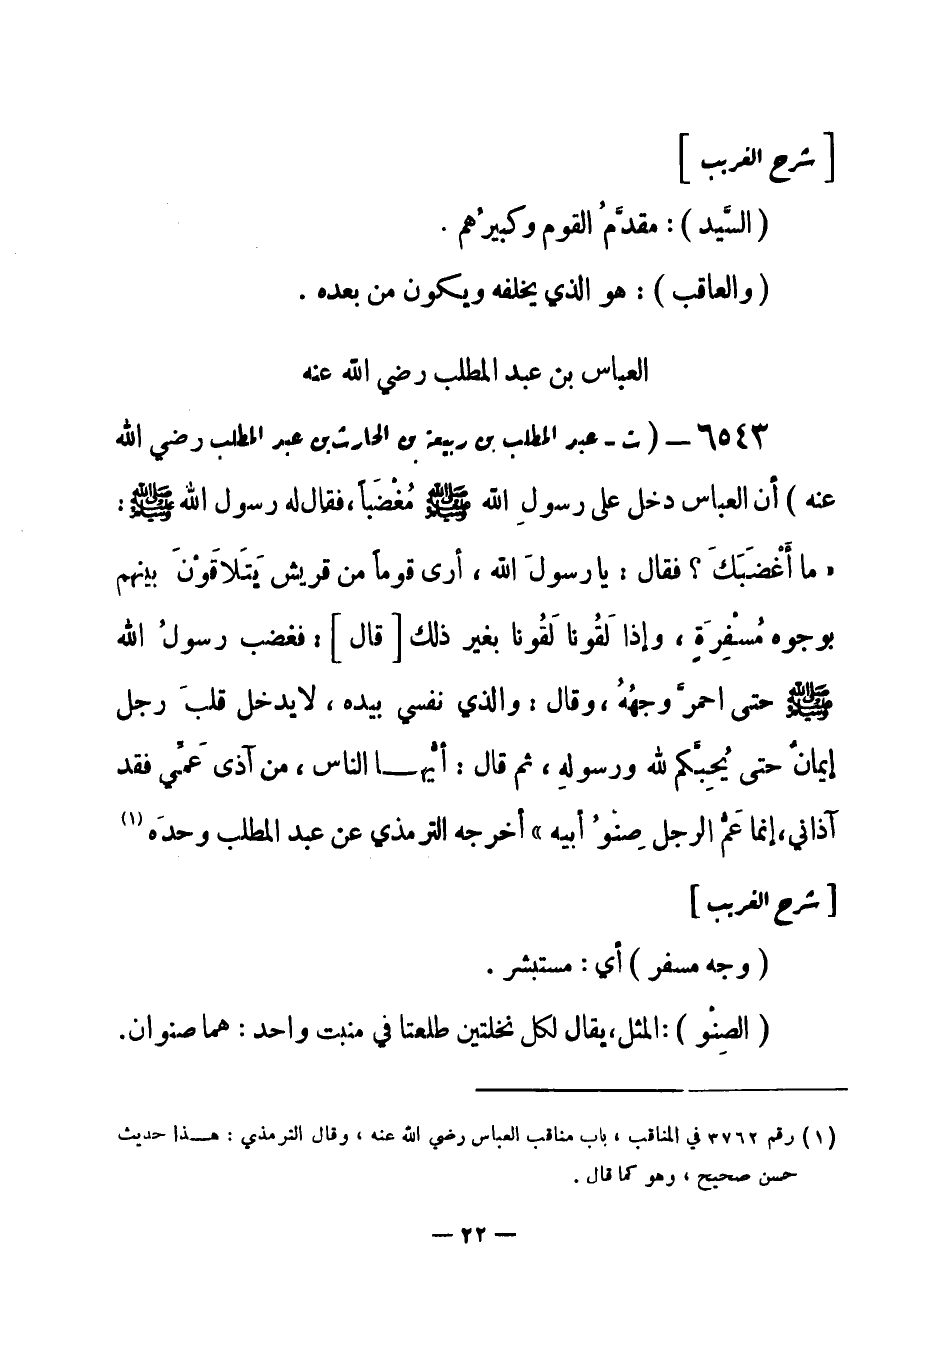 [ شرح الغريب ]
( السَّيد ) : مقدَّمُ القوم وكبيرُهم .
( والعاقب ) : هو الذي يخلفه ويكون من بعده .
العباس بن عبد المطلب رضي الله عنه
٦٥٤٣ – ( ت - عبد المطلب بن ربيعة بن الحارث بن عبد المطلب رضي الله
عنه ) أن العباس دخل على رسولِ الله ﷺ مُغْضَباً ، فقال له رسول الله ﷺ :
« ما أَغْضَبَكَ ؟ فقال : يا رسولَ الله ، أرى قوماً من قريش يَتَلاَقَوْنَ بينهم
بوجوه مُسْفِرَةٍ ، وإذا لَقُونا لَقُونا بغير ذلك [ قال ] : فغضب رسولُ الله
ﷺ حتى احمرَّ وجهُهُ ، وقال : والذي نفسي بيده ، لا يدخل قلبَ رجل
إيمانٌ حتى يُحِبَّكم لله ورسولهِ ، ثم قال : أيُّهـا الناس ، من آذى عَمِّي فقد
آذاني ، إنما عَمُّ الرجل صِنْوُ أبيه » أخرجه الترمذي عن عبد المطلب وحدَه (١)
[ شرح الغريب ]
( وجه مسفر ) أي : مستبشر .
( الصِنْو ) : المثل ، يقال لكل نخلتين طلعتا في منبت واحد : هما صنوان .
(١) رقم ٣٧٦٢ في المناقب ، باب مناقب العباس رضي الله عنه ، وقال الترمذي : هـذا حديث
حسن صحيح ، وهو كما قال .
— ٢٢ —